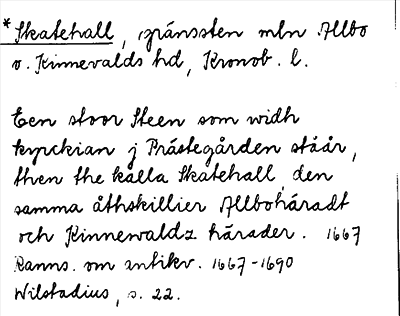 * Skatehall, gränssten mln Allbo
o. Kinnevalds hd, Kronob. l.
Een stoor Steen som widh
kyrckian j Prästegården ståår,
then the kalla Skatehall, den
samma åthskillier Allbohäradt
och Kinnewaldz härader. 1667
Ranns. om antikv. 1667-1690
Wilstadius, s. 22.